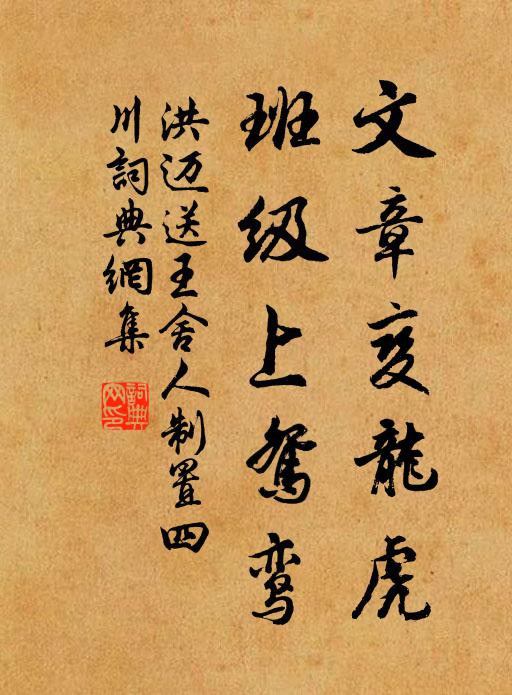 文章变龍虎
班级上鸳鸾
洪迈送王舍人制置四
川詞典網集
詞典